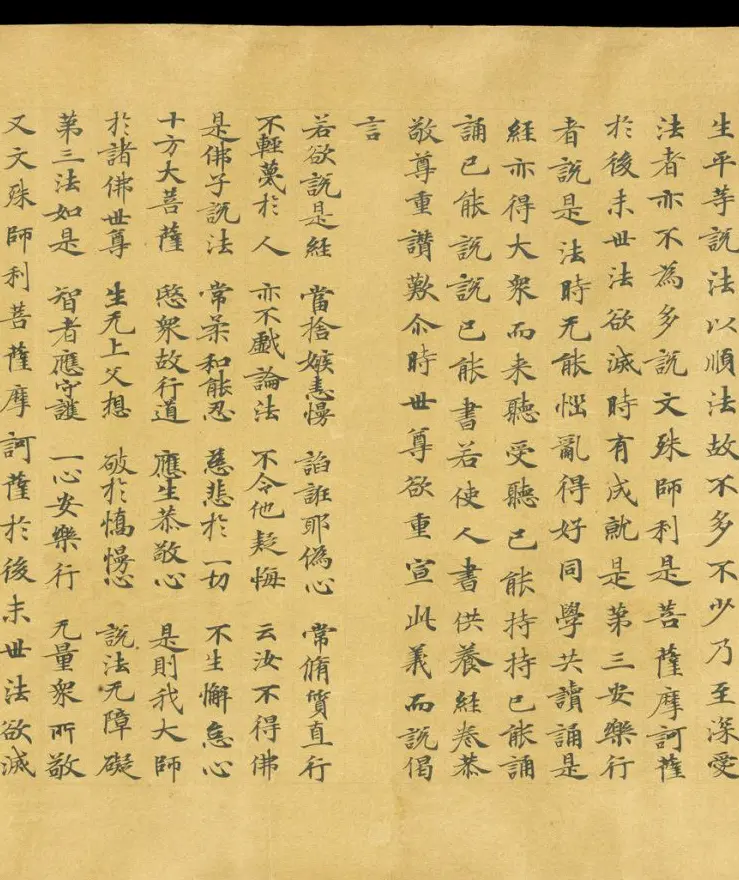 生平等說法以順法故不多不少乃至深愛
法者亦不為多說文殊師利是菩薩摩訶薩
於後末世法欲滅時有成就是第三安樂行
者說是法時无能惱亂得好同學共讀誦是
經亦得大衆而来聽受聽已能持持已能誦
誦已能說說已能書若使人書供養經卷恭
敬尊重讚歎尒時世尊欲重宣此義而說偈
言
若欲說是經 當捨嫉恚慢 諂誑耶偽心 常脩質直行
不輕蔑於人 亦不戲論法 不令他疑悔 云汝不得佛
是佛子說法 常柔和能忍 慈悲於一切 不生懈怠心
十方大菩薩 愍衆故行道 應生恭敬心 是則我大師
於諸佛世尊 生无上父想 破於憍慢心 說法无障礙
第三法如是 智者應守護 一心安樂行 无量衆所敬
又文殊師利菩薩摩訶薩於後末世法欲滅